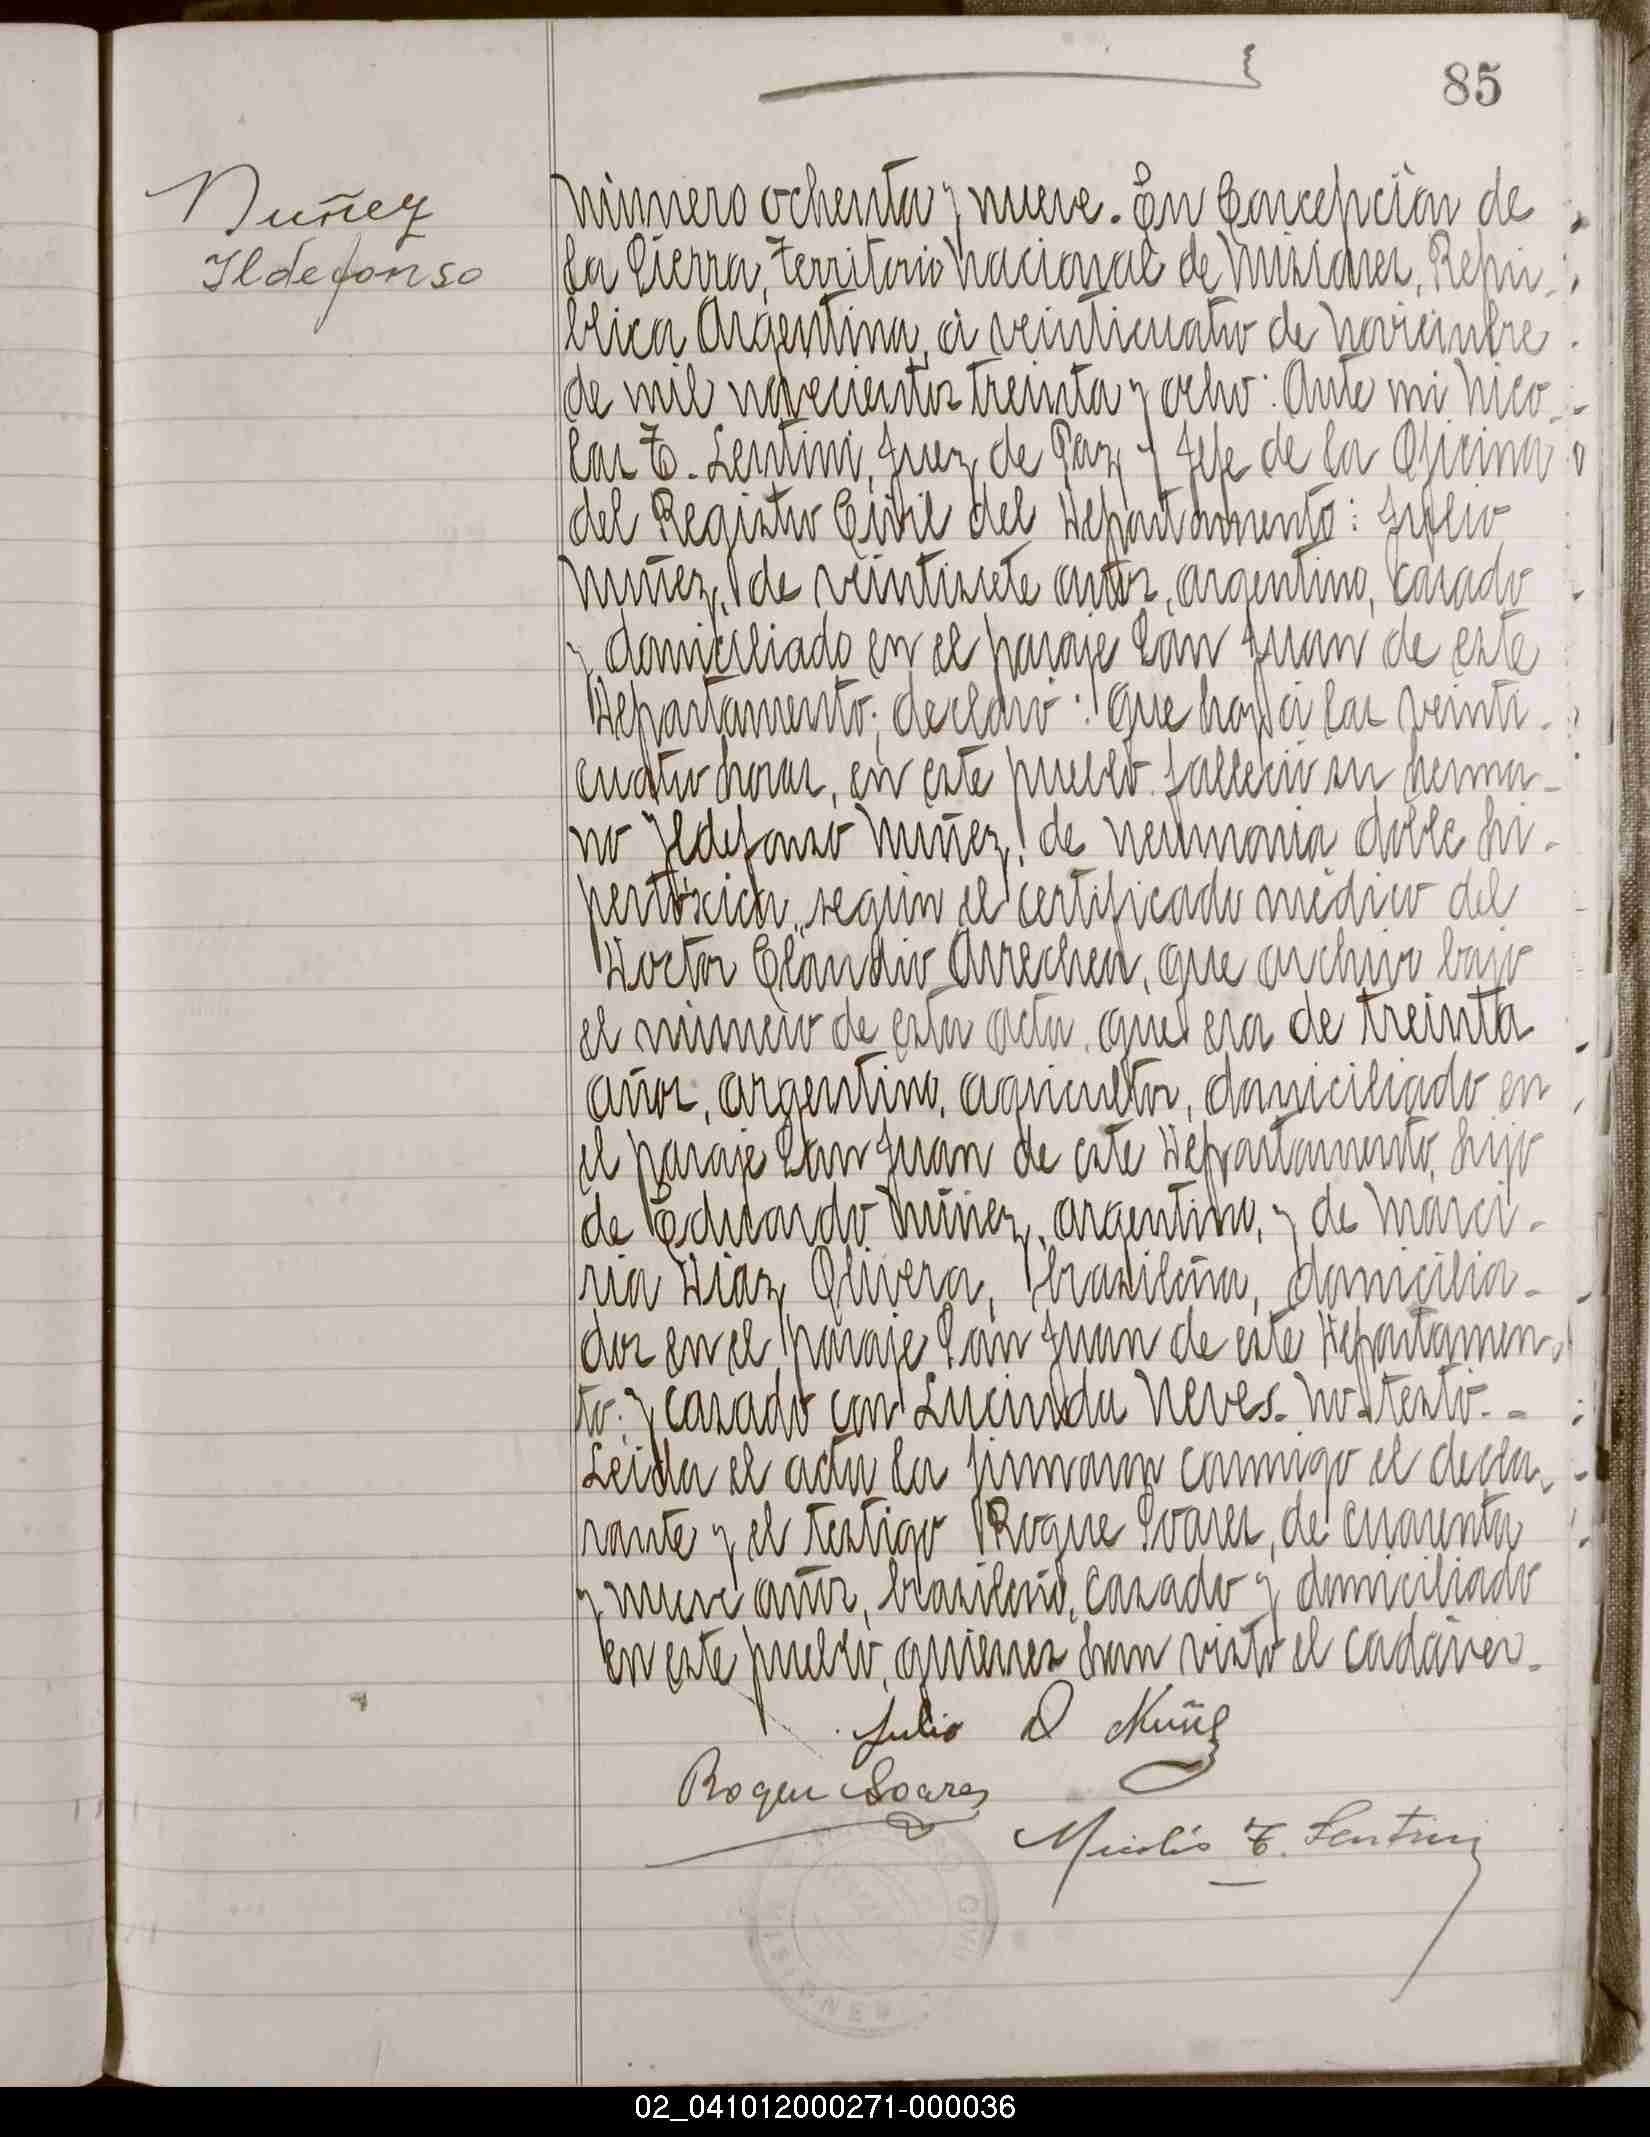 85
Nuñez
Ildefonso
Número ochenta y nueve. En Concepción de
la Sierra, Territorio Nacional de Misiones, Repú-
blica Argentina, á veinticuatro de Noviembre
de mil novecientos treinta y ocho: Ante mi Nico-
las T. Lentini, Juez de Paz y Jefe de la Oficina
del Registro Civil del Departamento: Julio
Nuñez, de veintisiete años, argentino, casado
y domiciliado en el paraje San Juan de este
Departamento; declaró: Que hoy á las veinti-
cuatro horas, en este pueblo falleció su herma-
no Ildefonso Nuñez, de neumonia doble hi-
pertóxica, según el certificado médico del
Doctor Claudio Arrechea, que archivo bajo
el número de esta acta, que era de treinta
años, argentino, agricultor, domiciliado en
el paraje San Juan de este Departamento, hijo
de Eduardo Nuñez, argentino, y de Marci-
ria Diaz Olivera, brasileña, domicilia-
dos en el paraje San Juan de este Departamen-
to; y casado con Lucinda Neves. No testó.-
Leida el acta la firmaron conmigo el decla-
rante y el testigo Roque Soares, de cuarenta
y nueve años, brasileño, casado y domiciliado
en este pueblo, quienes han visto el cadáver.
Julio D Nuñez
Roque Soares
Nicolás T. Lentini
02_041012000271-000036